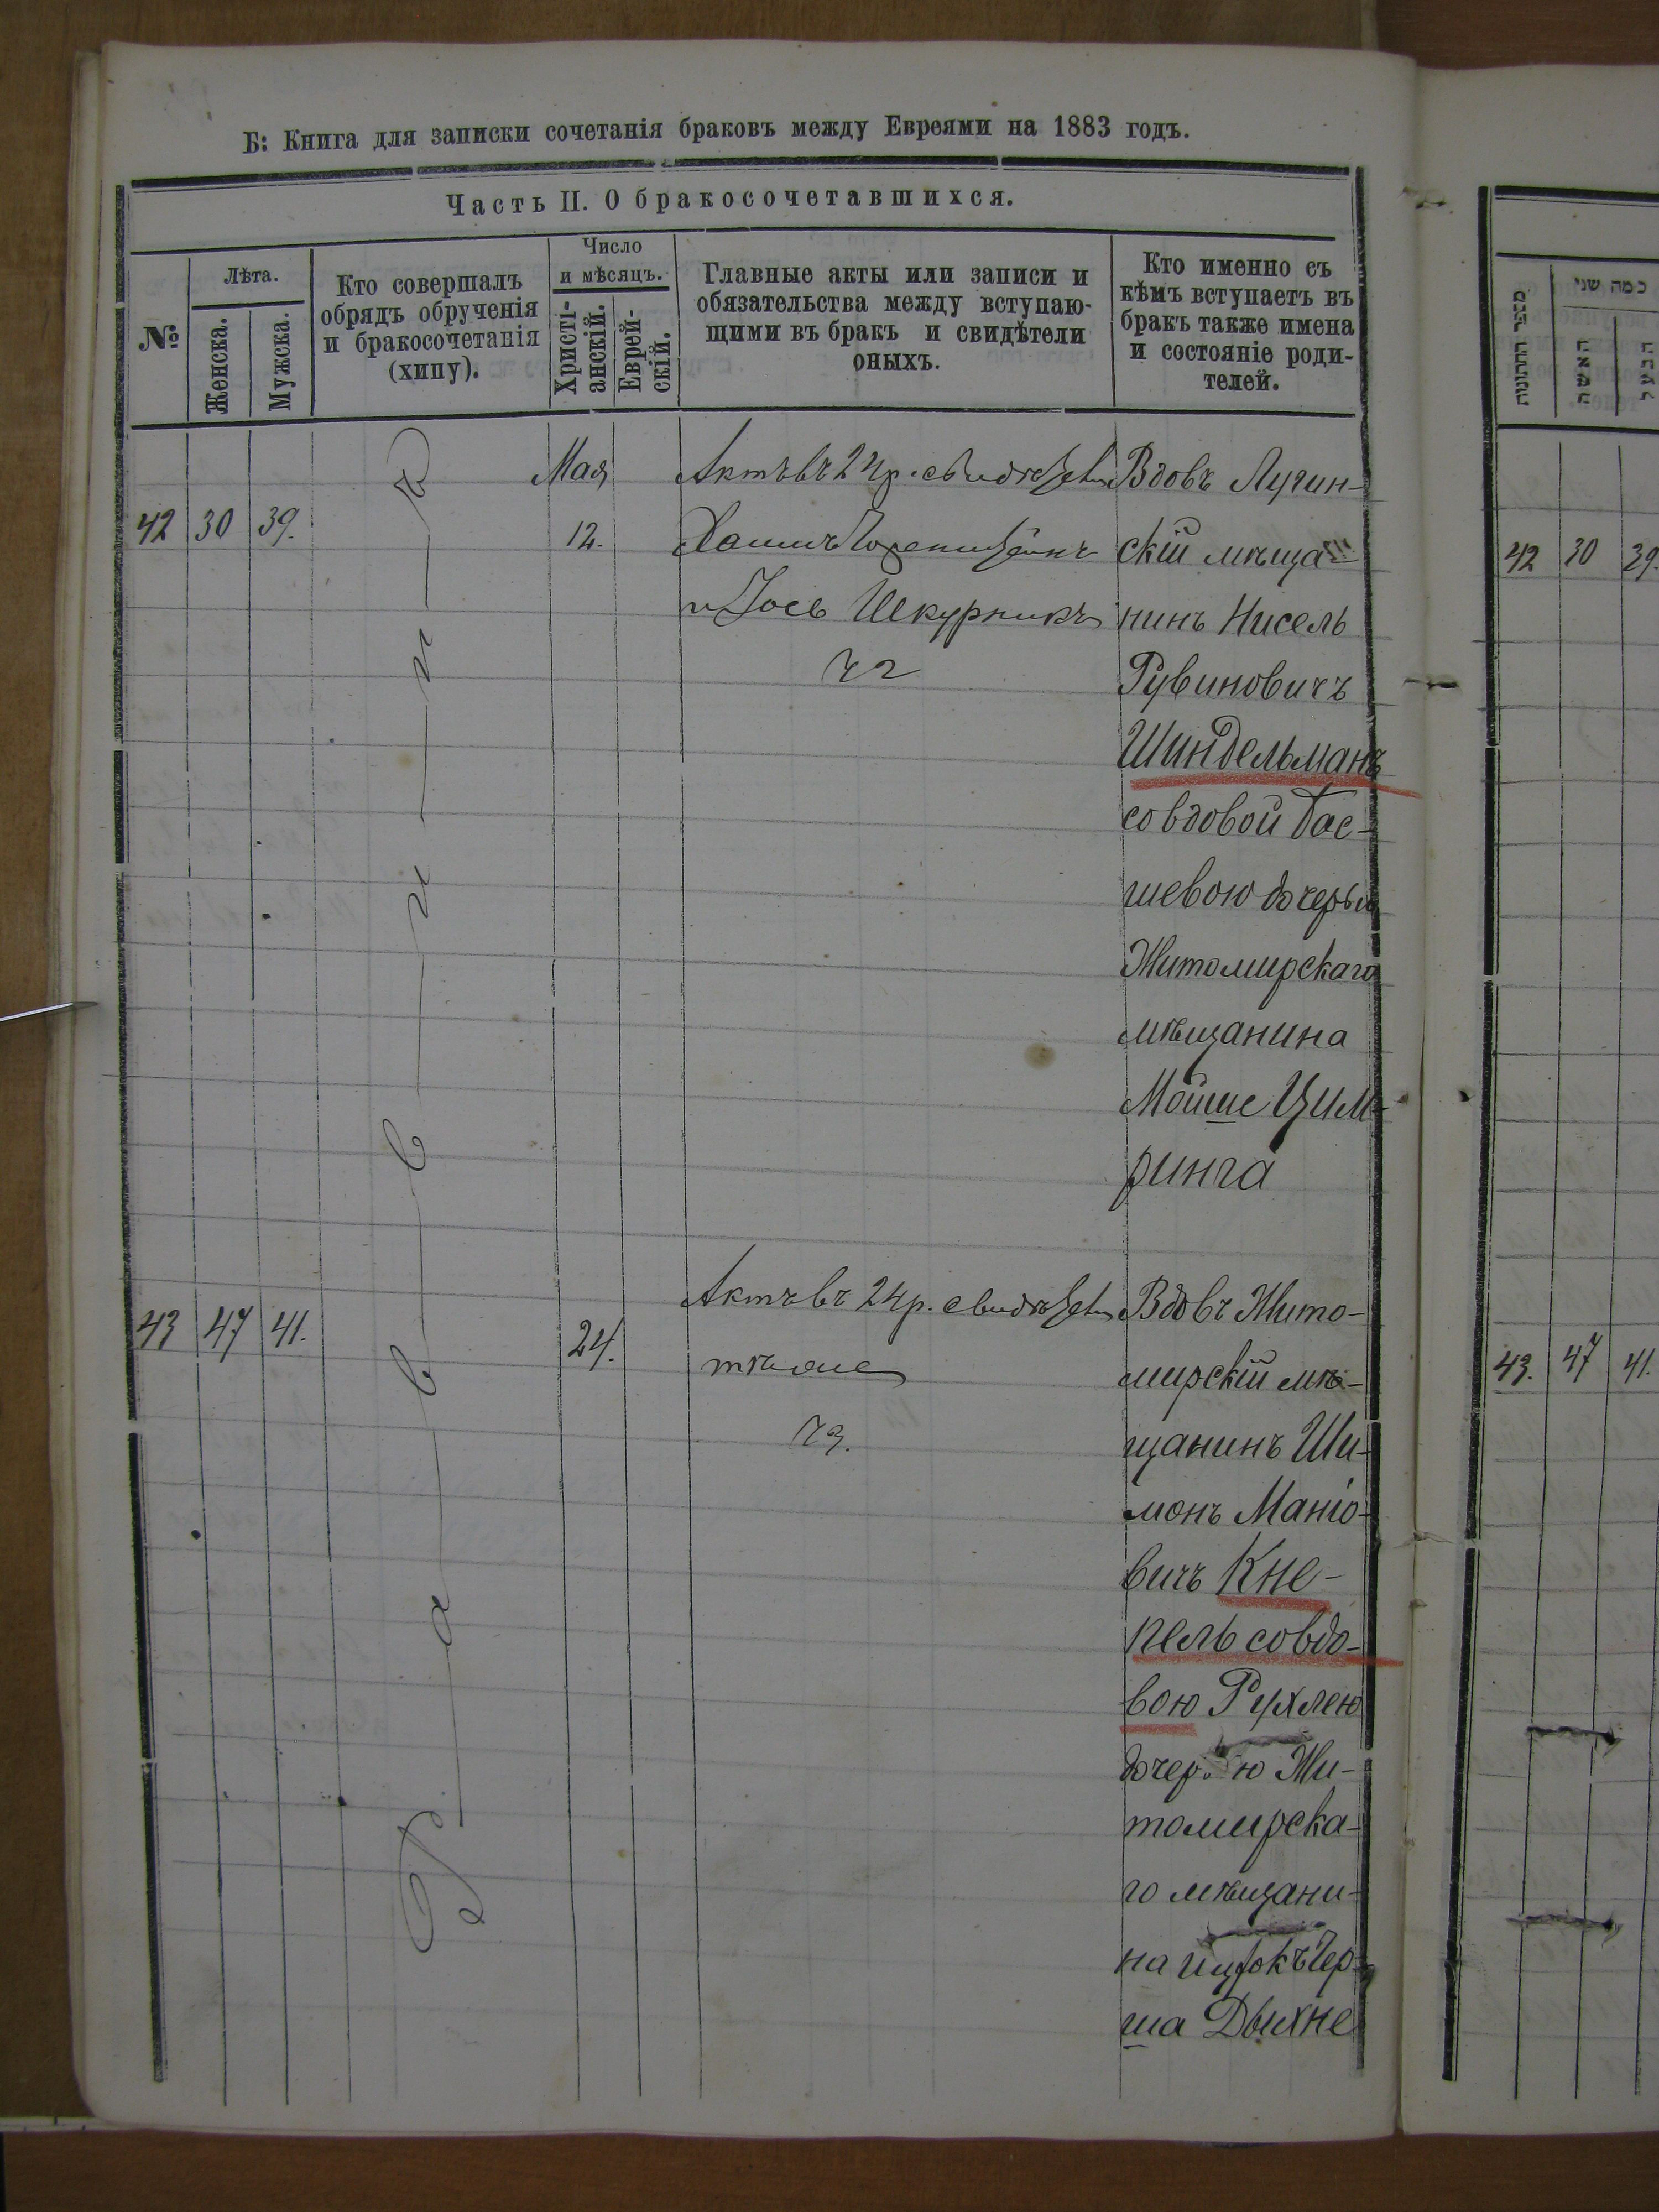 Б: Книга для записки сочетанія браковъ между Евреями на 1883 годъ.
Часть II. О бракосочетавшихся.
№
Лѣта.
Женска.
Мужска.
Кто совершалъ
обрядъ обрученія
и бракосочетанія
(хипу).
Число
и мѣсяцъ.
Христі-
анскій.
Еврей-
скій.
Главные акты или записи и
обязательства между вступаю-
щими въ бракъ и свидѣтели
оныхъ.
Кто именно съ
кѣмъ вступаетъ въ
бракъ также имена
и состояніе роди-
телей.
Раввинъ
42 30 39.
Мая
12.
Актъ въ 24 р. свидѣтели
Хаимъ
и Іось Шкурникъ
Ч2
Вдовъ Лугин-
скій мѣща-
нинъ Нисель
Рувиновичъ
Шиндельманъ
со вдовой Бас-
шевою дочерью
Житомирскаго
мѣщанина
Мойше Цим-
ринга
43 47 41.
24.
Актъ въ 24 р. свидѣтели
тѣ же
Ч3.
Вдовъ Жито-
мирскій мѣ-
щанинъ Ши-
монъ Маніо-
вичъ Кне-
пель со вдо-
вою Рухлею
дочерью Жи-
томирска-
го мѣщани-
на Ицокъ Гер-
ша Дыхне
מספר החתונות
כמה שני
האשה
הבעל
42 30 39.
43. 47 41.